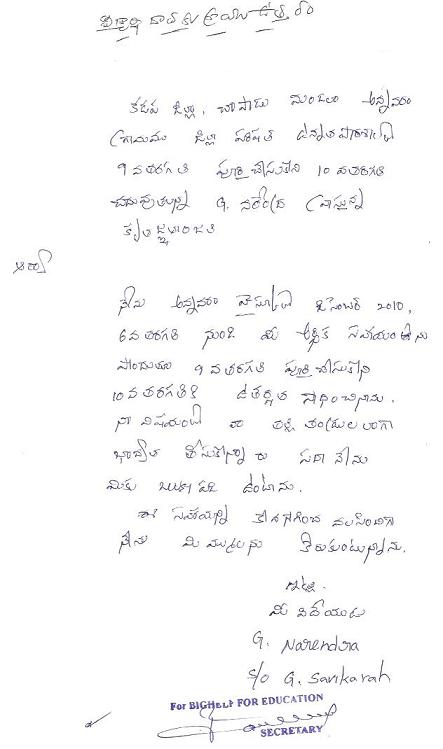 విద్యార్థి దాతకు వ్రాయు ఉత్తరం
కడప జిల్లా, చాపాడు మండలం అన్నవరం
గ్రామము జిల్లా పరిషత్ ఉన్నత పాఠశాల
9 వ తరగతి పూర్తి చేసుకొని 10 వ తరగతి
చదువుతున్న G. నరేంద్ర వ్రాస్తున్న
కృతజ్ఞతాంజలి
ఆర్యా
నేను అన్నవరం హైస్కూల్ డిసెంబర్ 2010,
6వ తరగతి నుండి మీ ఆర్థిక సహాయంను
పొందుతూ 9 వ తరగతి పూర్తి చేసుకొని
10 వ తరగతికి ఉతీర్ణత సాధించినాను.
నా విషయంలో తల్లి తండ్రుల లాగా
భాద్యత తీసుకొన్నారు సదా నేను
మీకు ఋణపడి ఉంటాను.
ఈ సహయాన్ని కొనసాగించ వలసిందిగా
నేను మి మ్మలను కోరుకుంటున్నాను.
ఇట్లు
మీ విదేయుడు
G. Narendra
S/o G. Sankaraiah
For BIGHELP FOR EDUCATION
SECRETARY